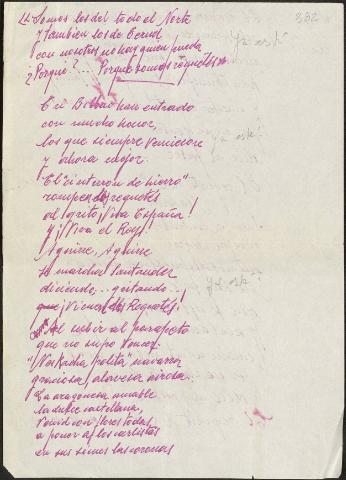 Somos los del todo el Norte 332
y tambien los de Teruel
con nosotros no hay quien pueda Ya está
¿Porqué?... Porque somos requetés
En Bilbao han entrado
con mucho honor,
los que siempre vencieron
y ahora mejor.
El "cinturón de hierro"
rompen los requetés
al grito ¡Viva España!
Y ¡Viva el Rey!
Aguirre, Aguirre
se marcha Santander
diciendo... gritando...
que ¡Vienen los Requetés!
Al subir al parapeto
que no supo vencer.
"Neskacha polita" navarra
graciosa, alavesa airosa.
La aragonesa amable
la dulce castellana,
Venid con flores todas,
a poner a los carlistas
en sus sienes las coronas